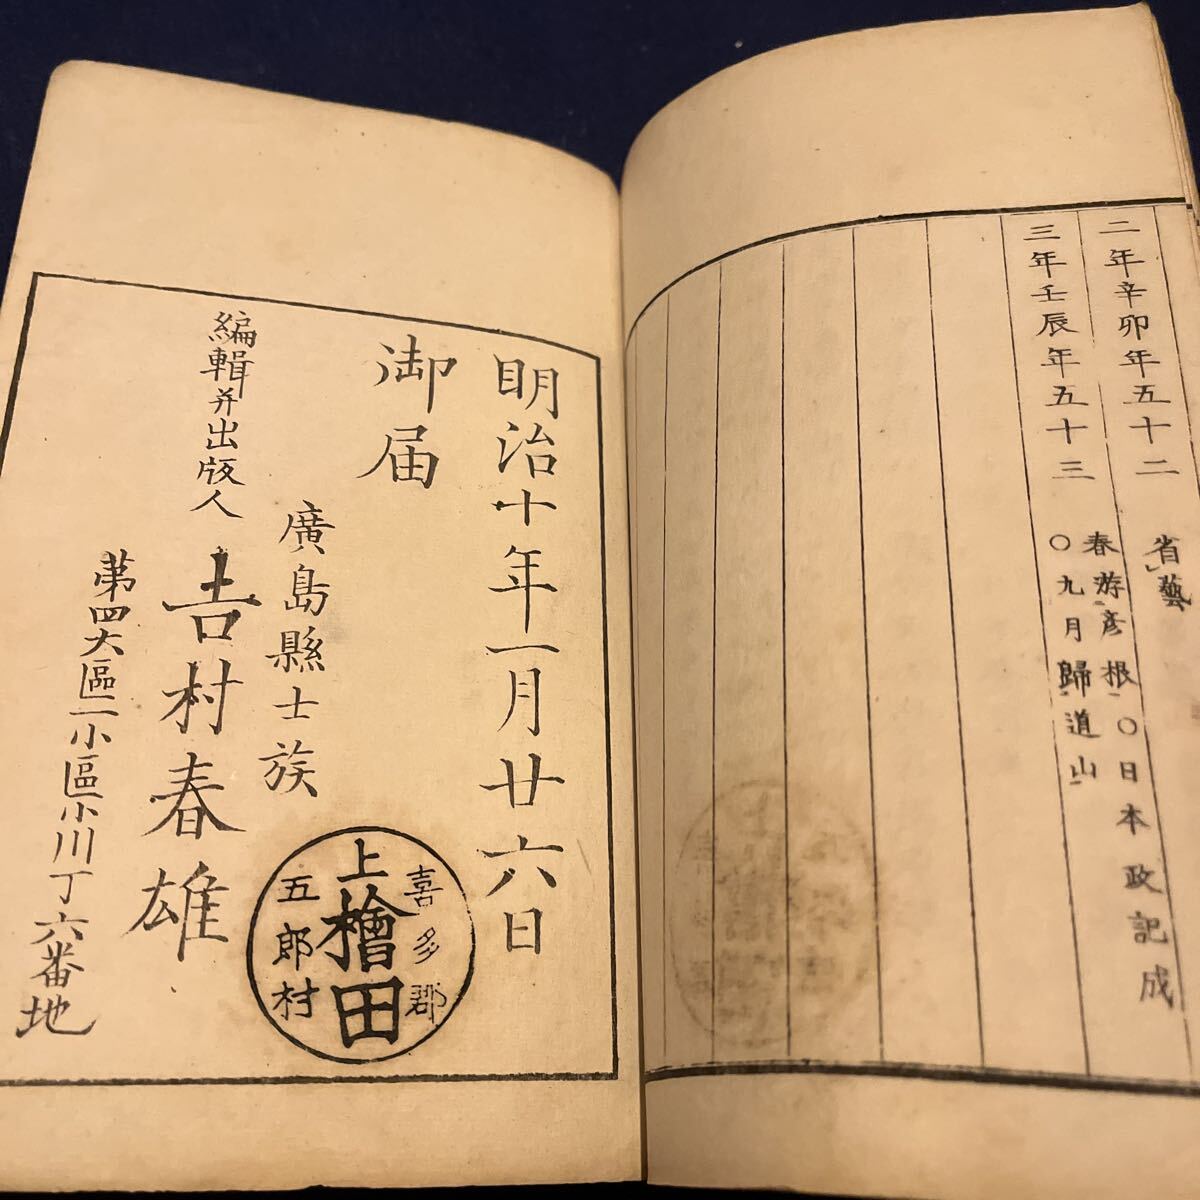 二年辛卯年五十二
省藝
春游彦根〇日本政記成
三年壬辰年五十三
〇九月歸道山
明治十年一月廿六日
御届
廣島縣士族
編輯并出版人
吉村春雄
第四大區二小區小川丁六番地
喜多郡
上檜田
五郎村